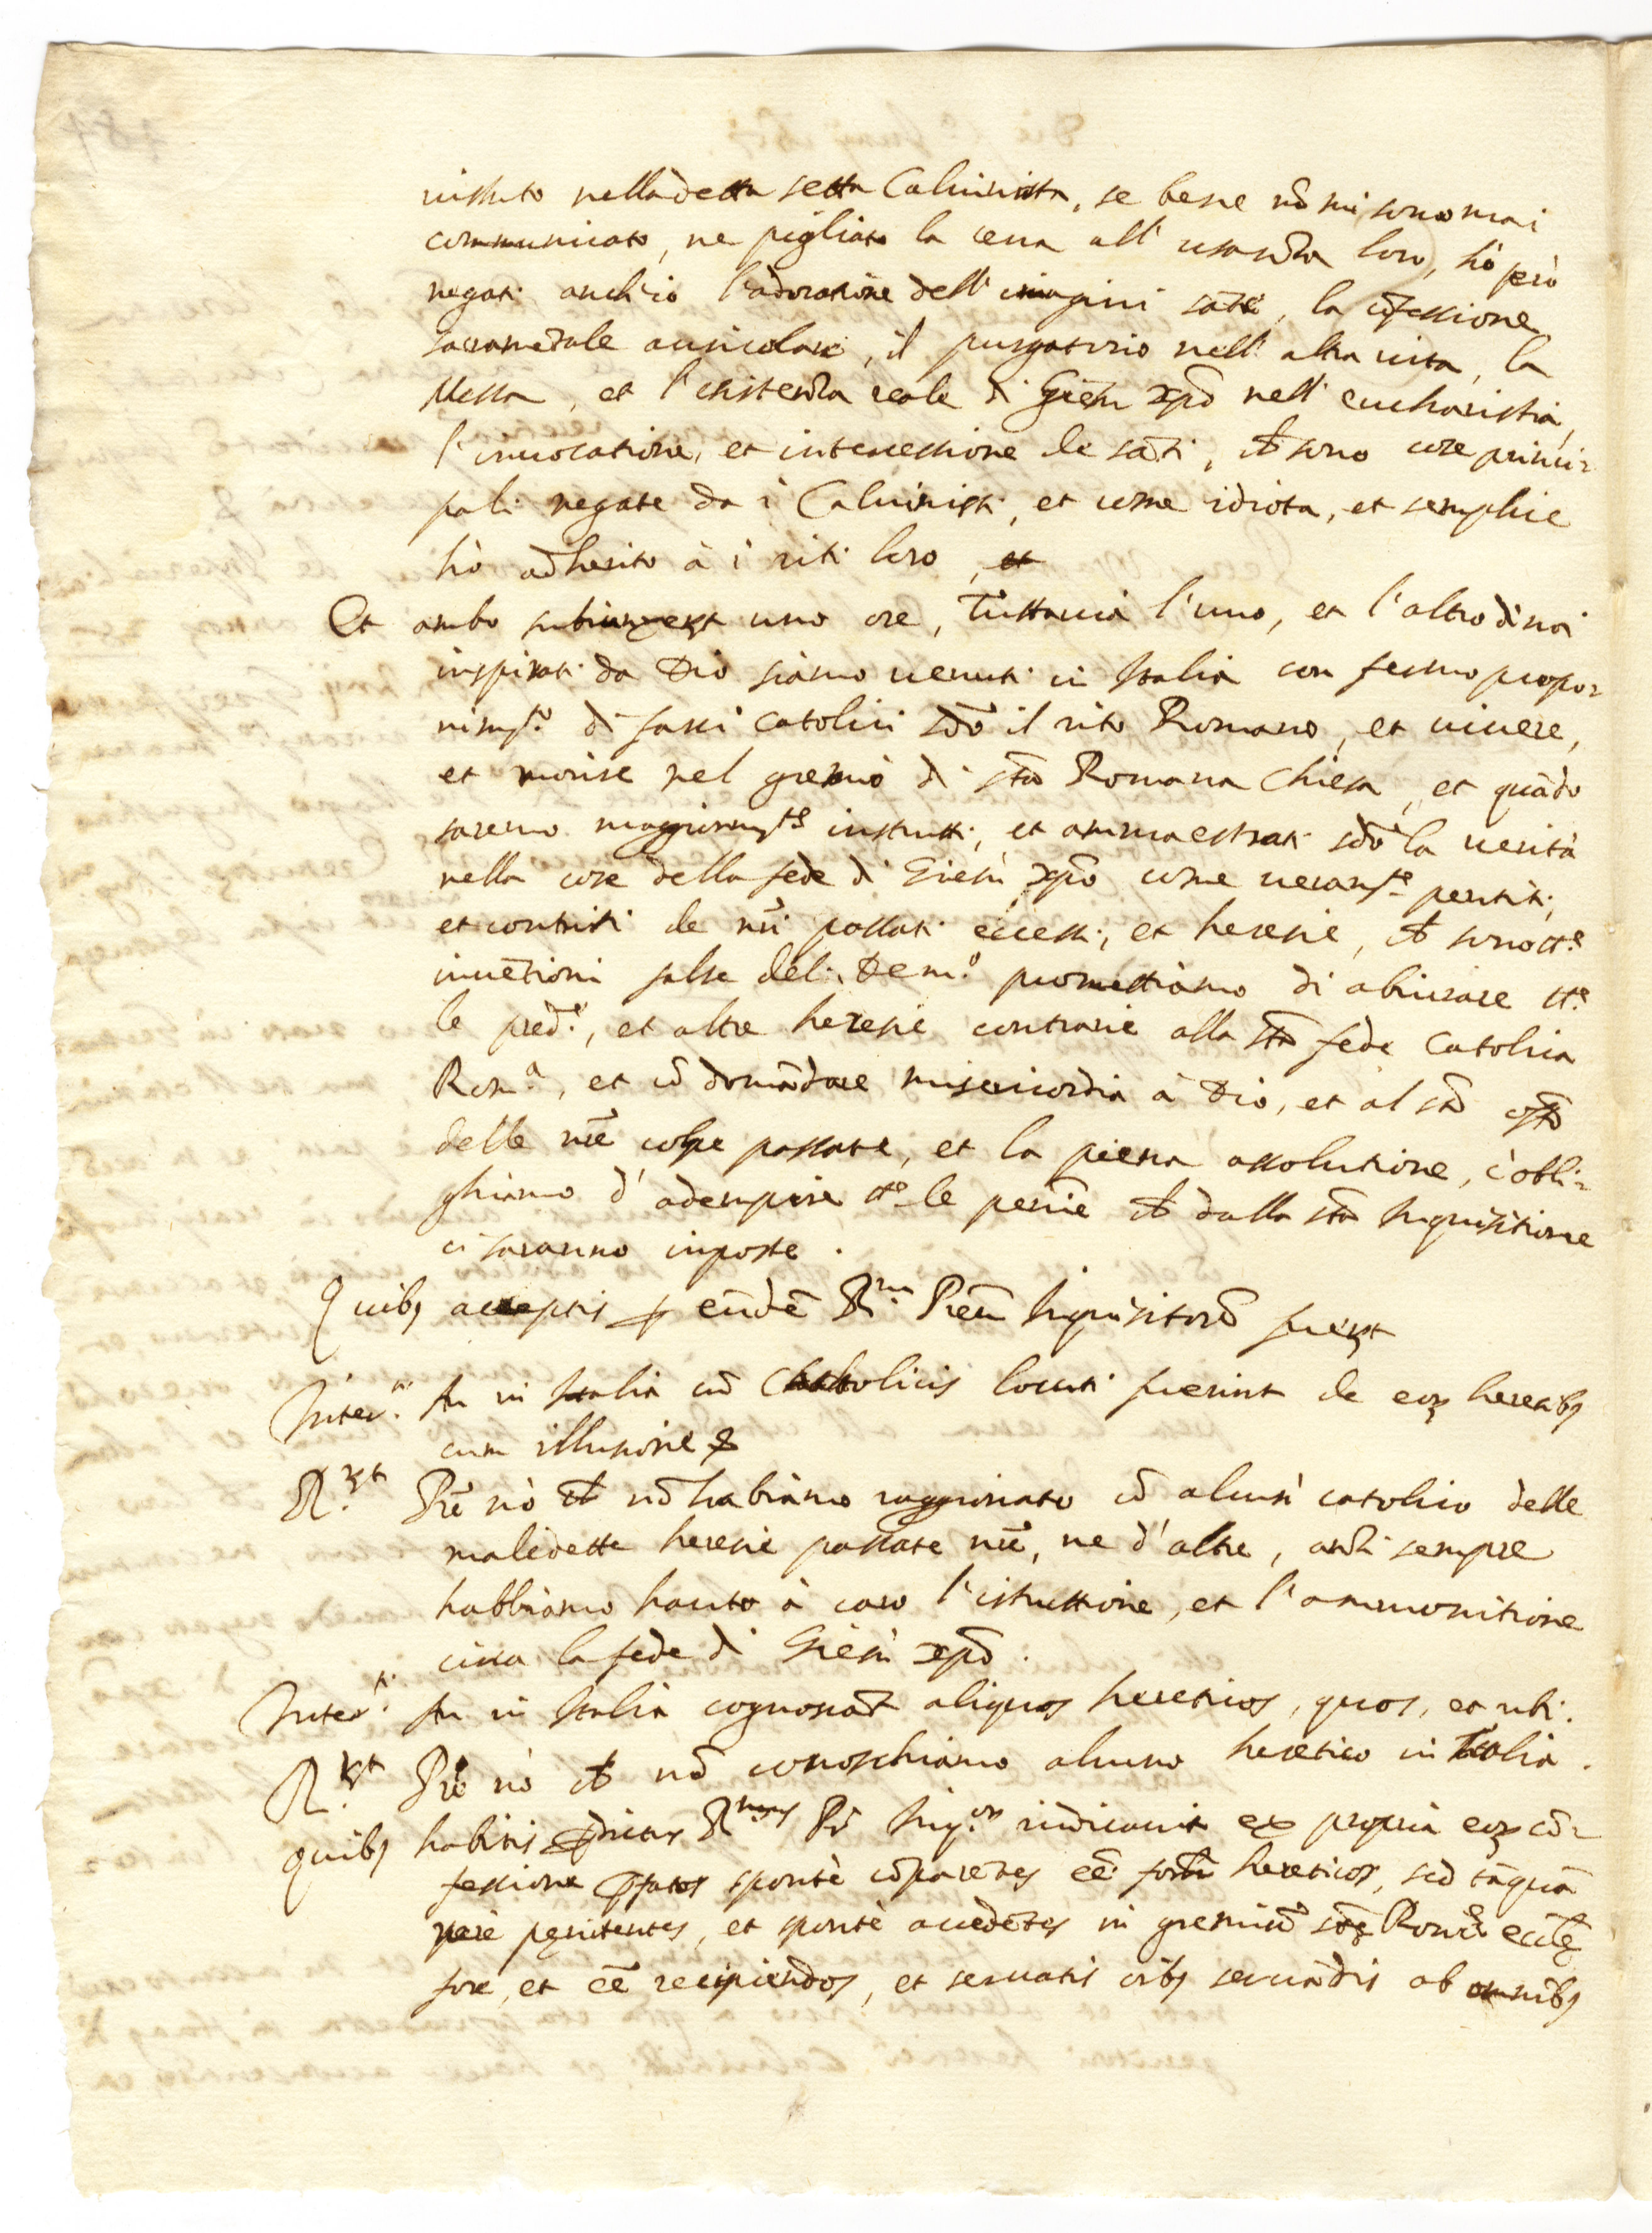 uissuto nella detta setta Caluinista, se bene nõ mi sono mai
communicato, ne pigliato la cena all' usanza loro, hò però
negati anch'io l'adoratione dell' imagini sãte, la cõfessione
sacramẽtale auricolare, il purgatorio nell' altra uita, la
Messa, et l'esistenza reale di Giesu xpõ nell' eucharistia,
l'inuocatione, et intercessione de sãti, ch sono cose princi=
pali negate da i Caluinisti, et come idiota, et semplice
hò adherito à i riti loro, et
Et ambo subiunxerũt uno ore, Tuttauia l'uno, et l'altro di noi
inspirati da Dio siamo uenuti in Italia con fermo propo=
nimto di farsi Catolici sdõ il rito Romano, et uiuere,
et morire nel gremio di stã Romana Chiesa, et quãdo
saremo maggiormte instrutti, et ammaestrati sdõ la uerità
nella cose della fede di Giesu xpõ come ueramte pentiti,
et contriti de nri passati eccessi, et heresie, ch sono tte
inuẽtioni false del Demo promettiamo di abiurare tte
le prede, et altre heresie contrarie alla stã fede Catolica
Roma, et cõ domãdare misericordia à Dio, et al stõ offo
delle nrẽ colpe passate, et la piena assolutione, c'obli=
ghiamo d'adempire tte le penñe ch dalla stã Inquisitione
ci saranno imposte.
Quibꝫ acceptis ꝑ eũdẽ Rmũ Prẽm Inquisitorẽ fuerũt
Interti An in Italia cũ Catholicis locuti fuerint de eorꝫ heresibꝫ
cum illusione &
Rrũt Prẽ nò ch nõ habiamo raggionato cõ alcun catolico delle
maledette heresie passate nrẽ, ne d'altre, anzi sempre
habbiamo hauto à caro l'istruttione, et l'ammonitione
circa la fede di Giesu xpõ.
Interti An in Italia cognoscãt aliquos hereticos, quos, et ubi.
Rrũt Prẽ nò ch nõ conoschiamo alcuno heretico in Italia.
Quibꝫ habitis pdictus Rmus Pr Inqor iudicauit ex propria eorꝫ cõ=
fessione pfatos spontè cõparẽtes eẽ formã hereticos, sed tãquã
uere pęnitentes, et spontè accedẽtes in gremiũ stę Ronę eccłę
fore, et eẽ recipiendos, et seruatis oĩbꝫ seruãdis ab omnibꝫ